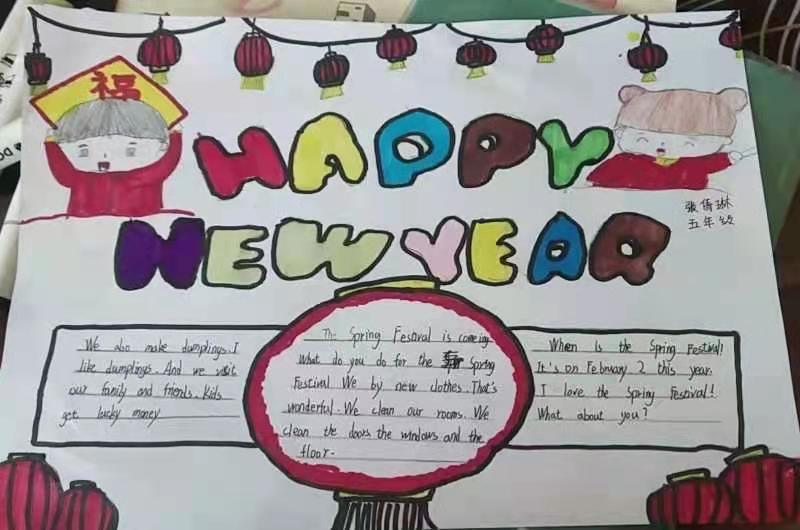 福
HAPPY
NEW YEAR
张倩琳
五年级
We also make dumplings. I
like dumplings. And we visit
our family and friends. Kids
get lucky money
The Spring Festival is comeing.
What do you do for the Spring
Festival We by new clothes. That's
wonderful. We clean our rooms. We
clean the doors the windows and the
floor.
When Is the Spring Festival!
It's on February 2 this year.
I love the Spring Festival!
What about you?